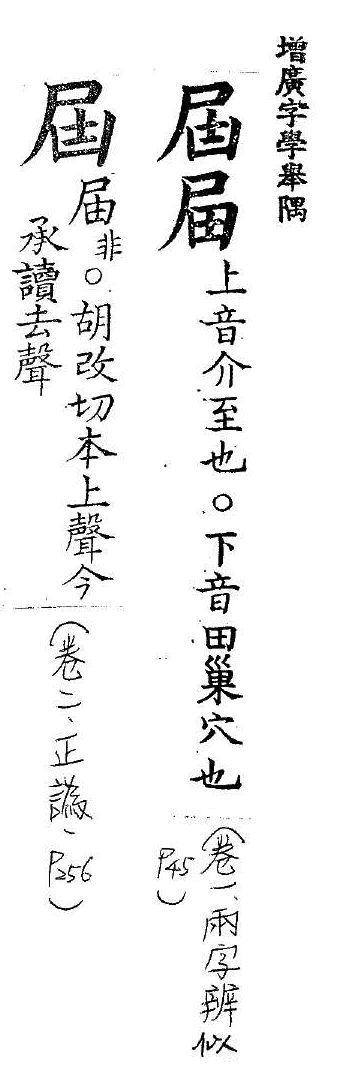 增廣字學舉隅
屆届上音介至也○下音田巢穴也
(卷一、兩字辨似
P45)
屆届非○胡改切本上聲今
承讀去聲
(卷二、正譌、
P256)